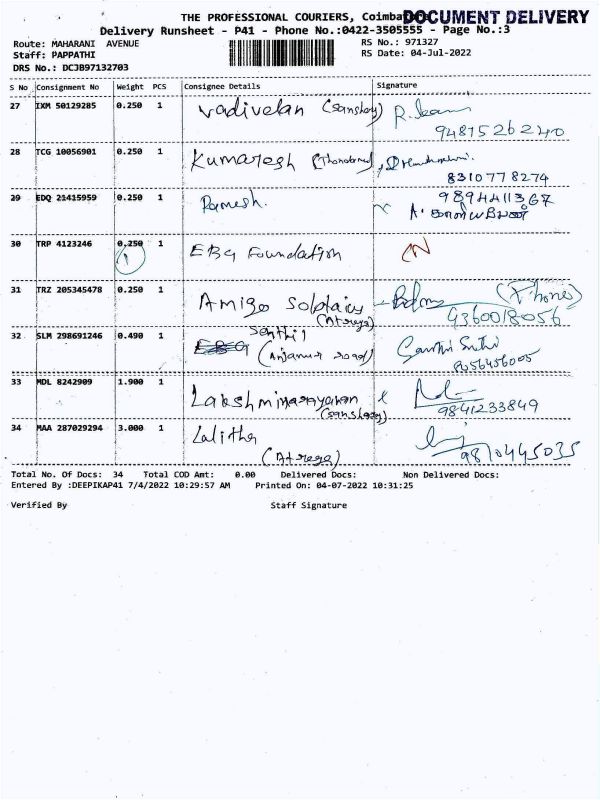 THE PROFESSIONAL COURIERS, Coimbatore
DOCUMENT DELIVERY
Delivery Runsheet - P41 - Phone No.:0422-3505555 - Page No.:3
Route: MAHARANI AVENUE
RS No.: 971327
Staff: PAPPATHI
RS Date: 04-Jul-2022
DRS No.: DCJB97132703
S No Consignment No Weight PCS Consignee Details Signature
27 IXM 50129285 0.250 1 Vadivelan
9487526240
28 TCG 10056901 0.250 1 Kumaresh
8310778274
29 EDQ 21415959 0.250 1 Ramesh.
9894411367
30 TRP 4123246 0.250 1 EBG Foundation N
1
31 TRZ 205345478 0.250 1 Amigo (Phone)
(Atreya) 9360018056
32 SLM 298691246 0.490 1 Senthil
EBG (Anjanur road)
8056456005
33 MDL 8242909 1.900 1 Lakshminarayanan
9841233849
34 MAA 287029294 3.000 1 Lalitha
(Atreya) 9810445035
Total No. Of Docs: 34 Total COD Amt: 0.00 Delivered Docs: Non Delivered Docs:
Entered By :DEEPIKAP41 7/4/2022 10:29:57 AM Printed On: 04-07-2022 10:31:25
Verified By Staff Signature